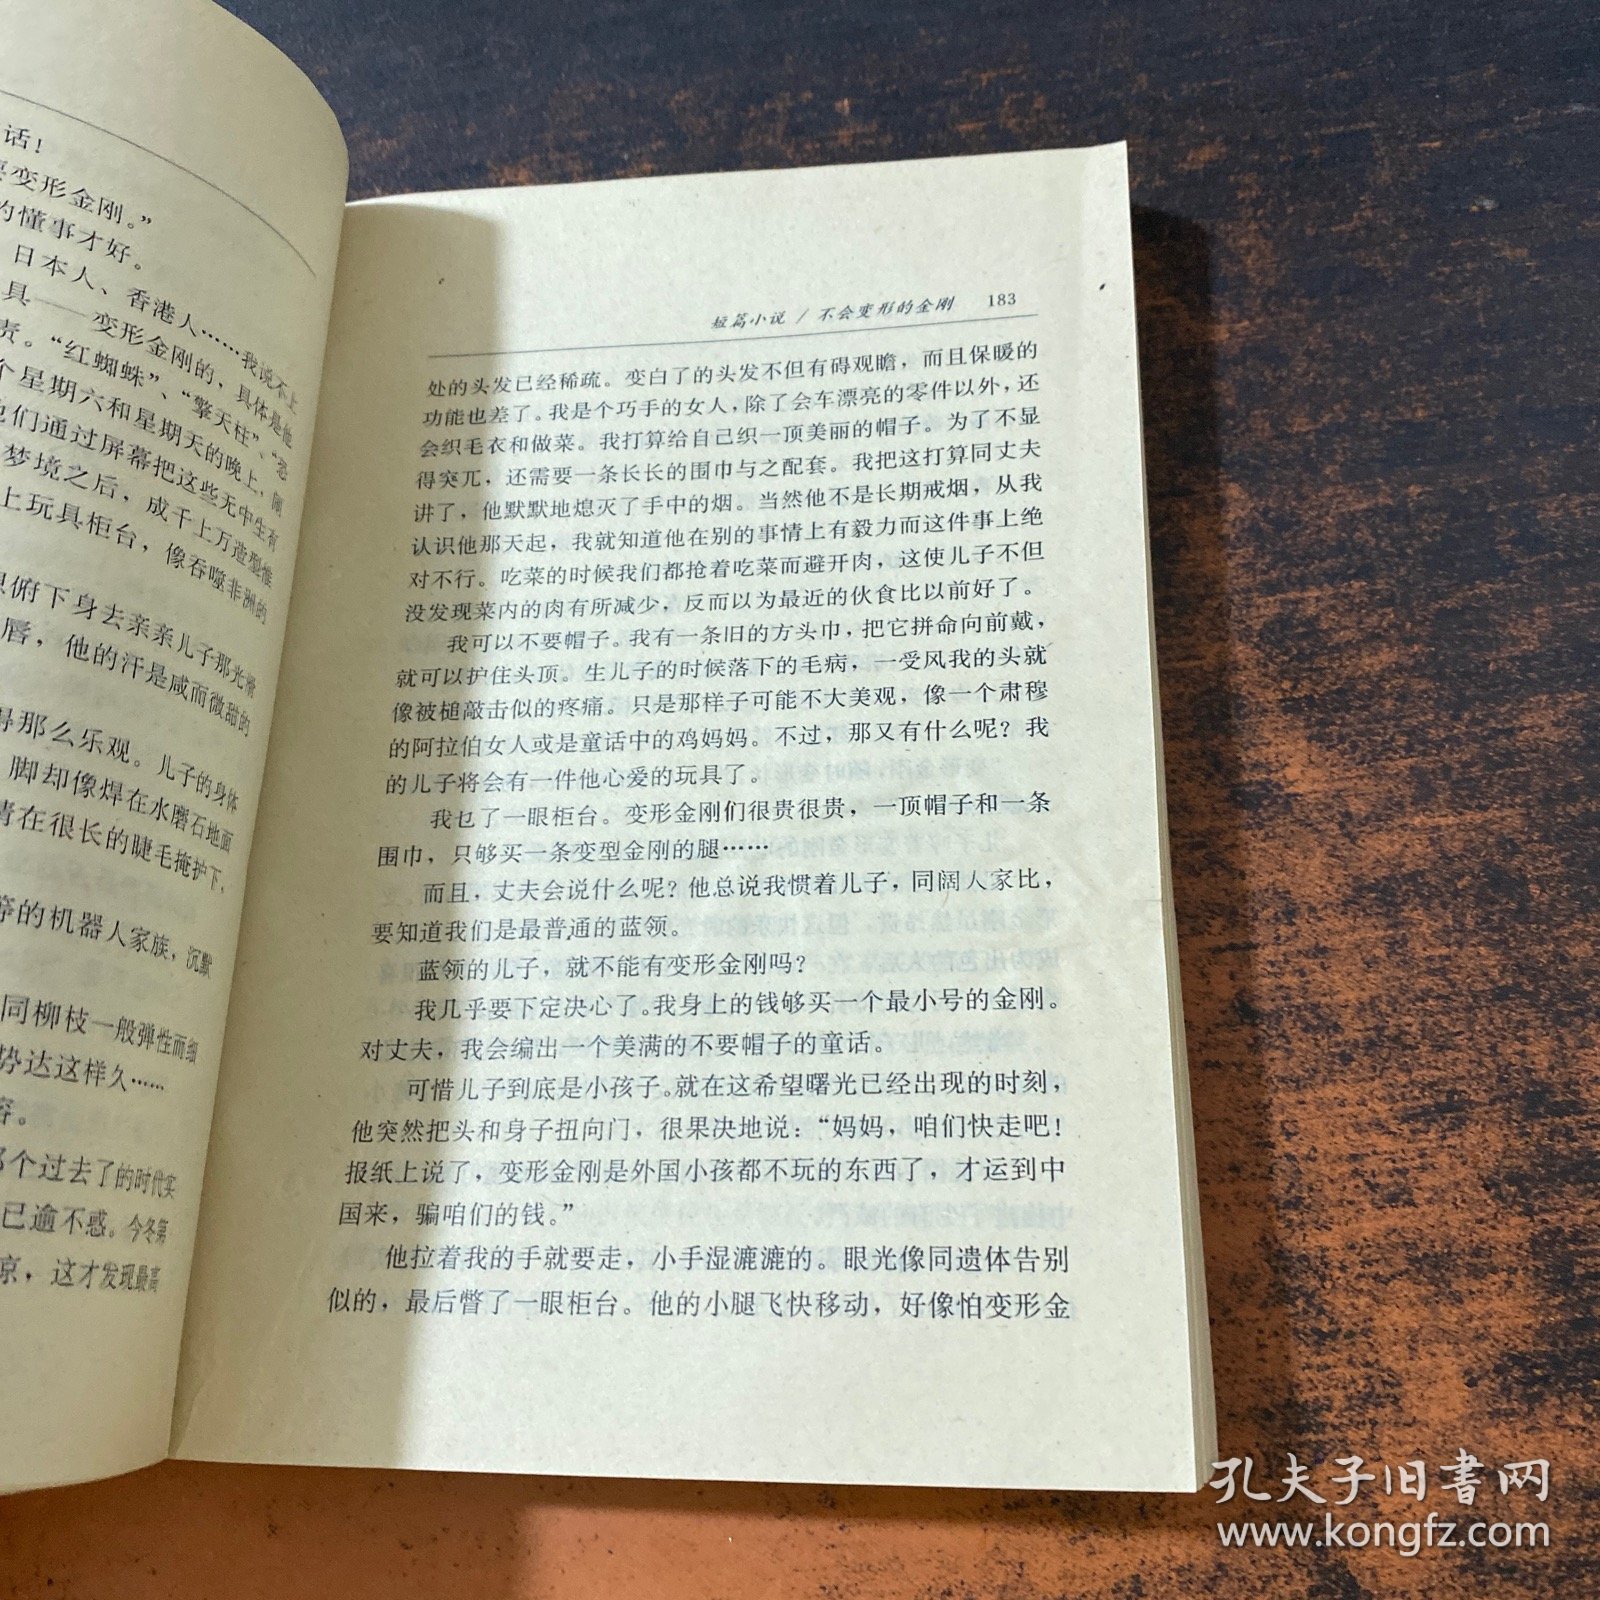 话！
要变形金刚。”
的懂事才好。
日本人、香港人……我说不上
具——变形金刚的，具体是他
责。“红蜘蛛”、“擎天柱”、“恐
个星期六和星期天的晚上，闹
他们通过屏幕把这些无中生有
梦境之后，成千上万造型惟
上玩具柜台，像吞噬非洲的
俯下身去亲亲儿子那光滑
唇，他的汗是咸而微甜的
得那么乐观。儿子的身体
脚却像焊在水磨石地面
睛在很长的睫毛掩护下，
的机器人家族，沉默
同柳枝一般弹性而细
势达这样久……
容。
那个过去了的时代实
已逾不惑。今冬第
凉，这才发现最高
短篇小说 / 不会变形的金刚 183
处的头发已经稀疏。变白了的头发不但有碍观瞻，而且保暖的
功能也差了。我是个巧手的女人，除了会车漂亮的零件以外，还
会织毛衣和做菜。我打算给自己织一顶美丽的帽子。为了不显
得突兀，还需要一条长长的围巾与之配套。我把这打算同丈夫
讲了，他默默地熄灭了手中的烟。当然他不是长期戒烟，从我
认识他那天起，我就知道他在别的事情上有毅力而这件事上绝
对不行。吃菜的时候我们都抢着吃菜而避开肉，这使儿子不但
没发现菜内的肉有所减少，反而以为最近的伙食比以前好了。
我可以不要帽子。我有一条旧的方头巾，把它拼命向前戴，
就可以护住头顶。生儿子的时候落下的毛病，一受风我的头就
像被槌敲击似的疼痛。只是那样子可能不大美观，像一个肃穆
的阿拉伯女人或是童话中的鸡妈妈。不过，那又有什么呢？我
的儿子将会有一件他心爱的玩具了。
我乜了一眼柜台。变形金刚们很贵很贵，一顶帽子和一条
围巾，只够买一条变型金刚的腿……
而且，丈夫会说什么呢？他总说我惯着儿子，同阔人家比，
要知道我们是最普通的蓝领。
蓝领的儿子，就不能有变形金刚吗？
我几乎要下定决心了。我身上的钱够买一个最小号的金刚。
对丈夫，我会编出一个美满的不要帽子的童话。
可惜儿子到底是小孩子。就在这希望曙光已经出现的时刻，
他突然把头和身子扭向门，很果决地说：“妈妈，咱们快走吧！
报纸上说了，变形金刚是外国小孩都不玩的东西了，才运到中
国来，骗咱们的钱。”
他拉着我的手就要走，小手湿漉漉的。眼光像同遗体告别
似的，最后瞥了一眼柜台。他的小腿飞快移动，好像怕变形金
孔夫子旧书网
www.kongfz.com